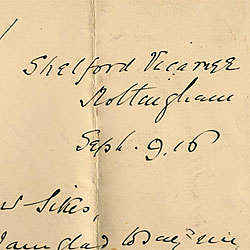 Shelford Vicarage
Nottingham
Sept. 9. 16
Sikes,
I am glad to